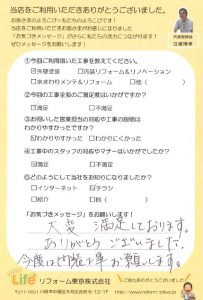 当店をご利用いただきありがとうございました。
お客さまのよろこび=私たちのよろこびです！
当店をご利用いただきお客さまが対面になりました
「お気づきメッセージ」がさらに私たちの励みにつながります！
ぜひメッセージをお願いします！
①今回ご利用頂いた工事を教えてください。
☑外壁塗装 □内装リフォーム&リノベーション
□水まわりメンテ&リフォーム □他( )
②今回の工事全般のご満足度はいかがですか？
☑満足 □不満足
③お伺いした営業担当の対応や工事の説明は
わかりやすかったですか？
☑わかりやすかった □わかりにくかった
④工事中のスタッフの対応やマナーはいかがでしたか？
☑満足 □不満足
⑤どのようにして当社をお知りになりましたか？
□インターネット ☑チラシ
□紹介 □他( )
「お気づきメッセージ」をお願いします！
大変満足しております。
ありがとうございました。
今度は内装工事お願いします。
Life
リフォーム東京株式会社
ご協力ありがとうございました